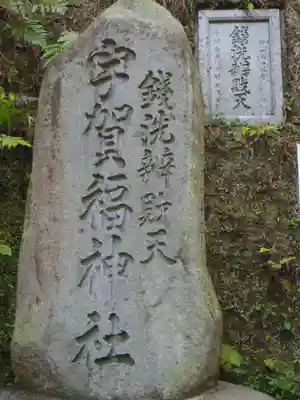 銭洗辨財天
宇賀福神社
錢洗辨財天